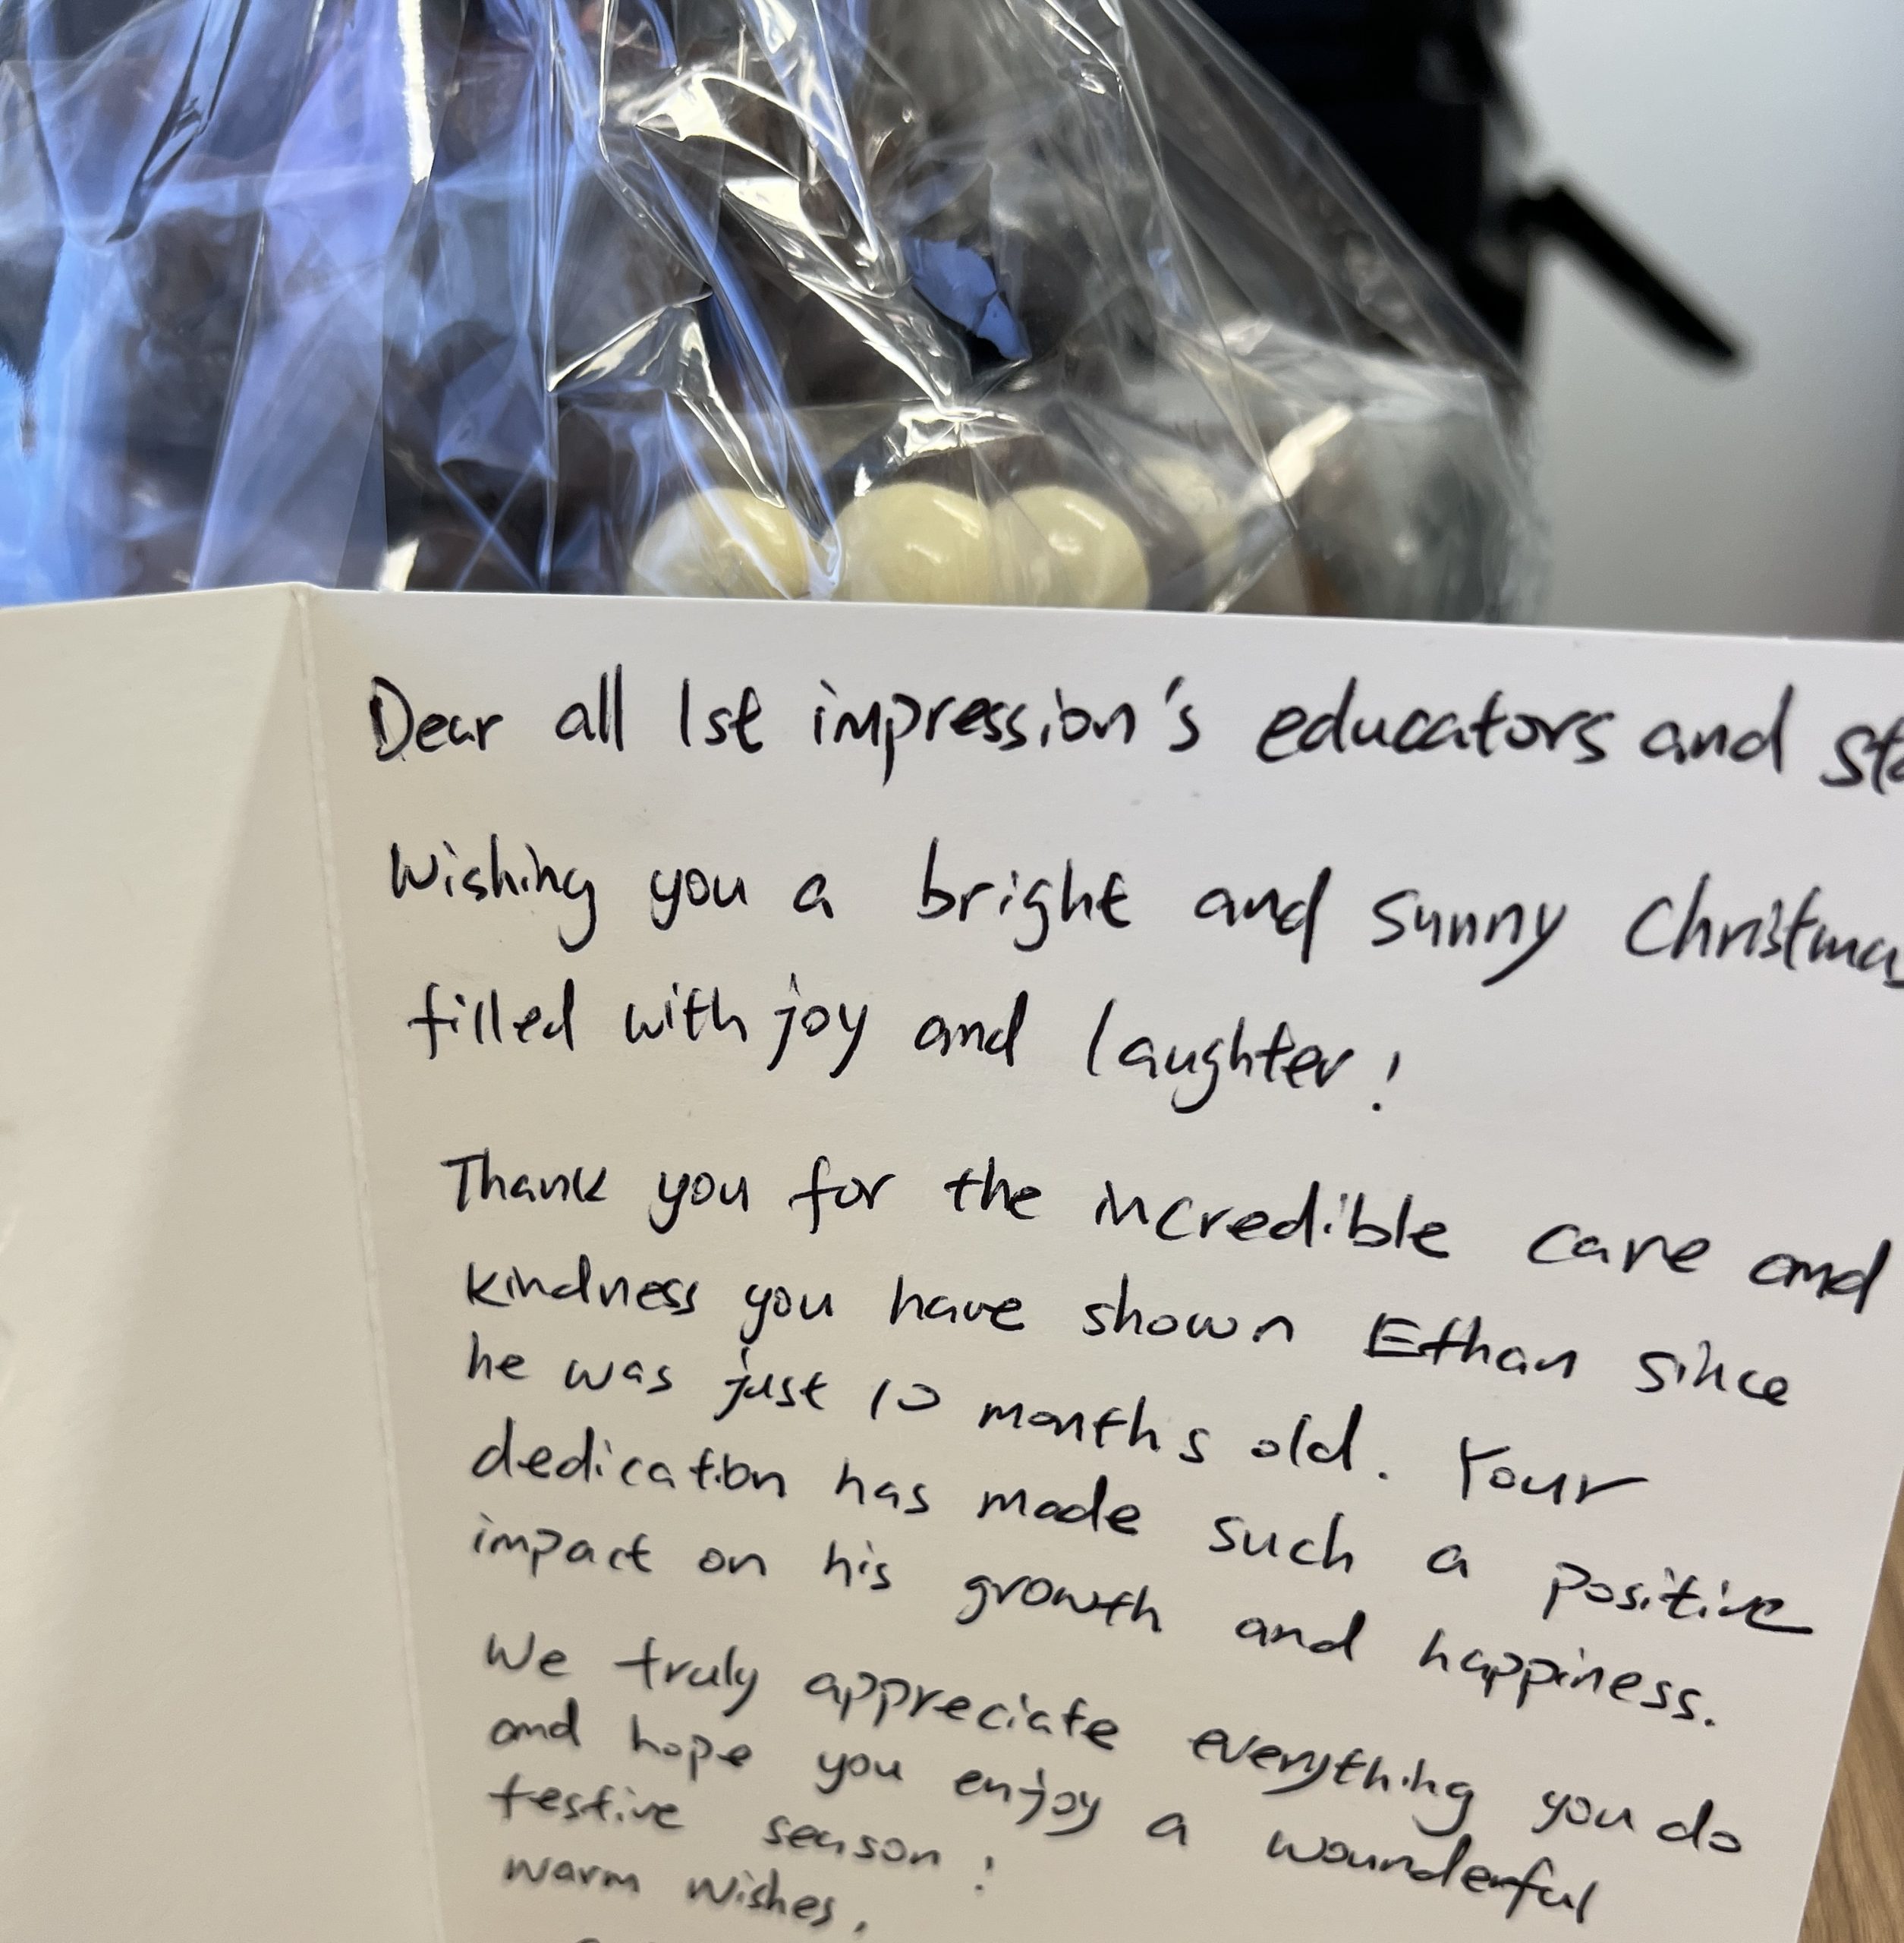 Dear all 1st impression's educators and sta
Wishing you a bright and sunny Christmas
filled with joy and laughter!
Thank you for the incredible care and
kindness you have shown Ethan since
he was just 10 months old. Your
dedication has made such a positive
impact on his growth and happiness.
We truly appreciate everything you do
and hope you enjoy a wounderful
festive season!
Warm Wishes,